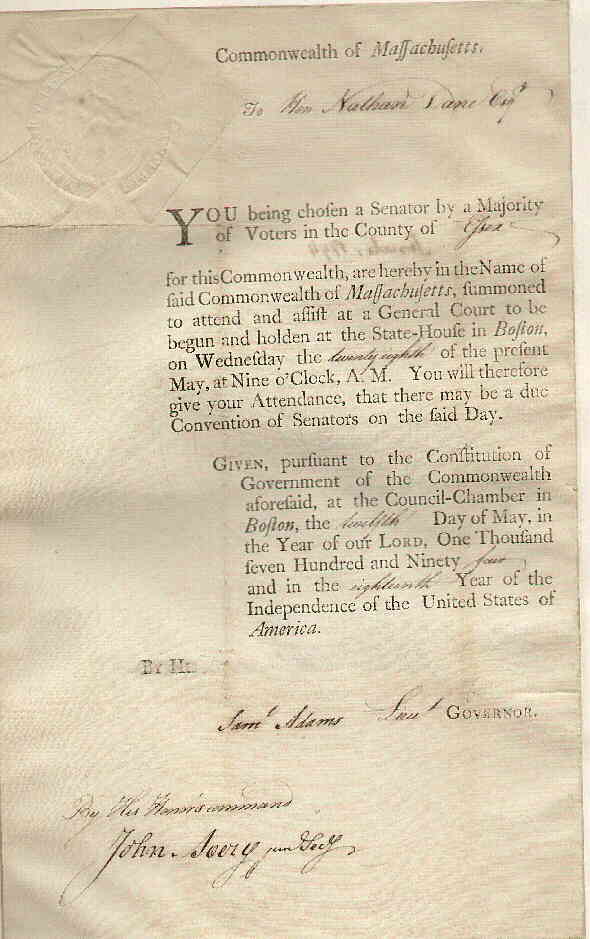 Commonwealth of Maſſachuſetts.
To Hon Nathan Dane Esqr
YOU being choſen a Senator by a Majority
of Voters in the County of Eſsex
for this Commonwealth, are hereby in the Name of
ſaid Commonwealth of Maſſachuſetts, ſummoned
to attend and aſſiſt at a General Court to be
begun and holden at the State-Houſe in Boſton,
on Wedneſday the twenty eighth of the preſent
May, at Nine o'Clock, A. M. You will therefore
give your Attendance, that there may be a due
Convention of Senators on the ſaid Day.
GIVEN, purſuant to the Conſtitution of
Government of the Commonwealth
aforeſaid, at the Council-Chamber in
Boſton, the twelfth Day of May, in
the Year of our LORD, One Thouſand
ſeven Hundred and Ninety four
and in the eighteenth Year of the
Independence of the United States of
America.
BY HIS
Saml Adams Lieut GOVERNOR.
By His Honor's command
John Avery jun Secy